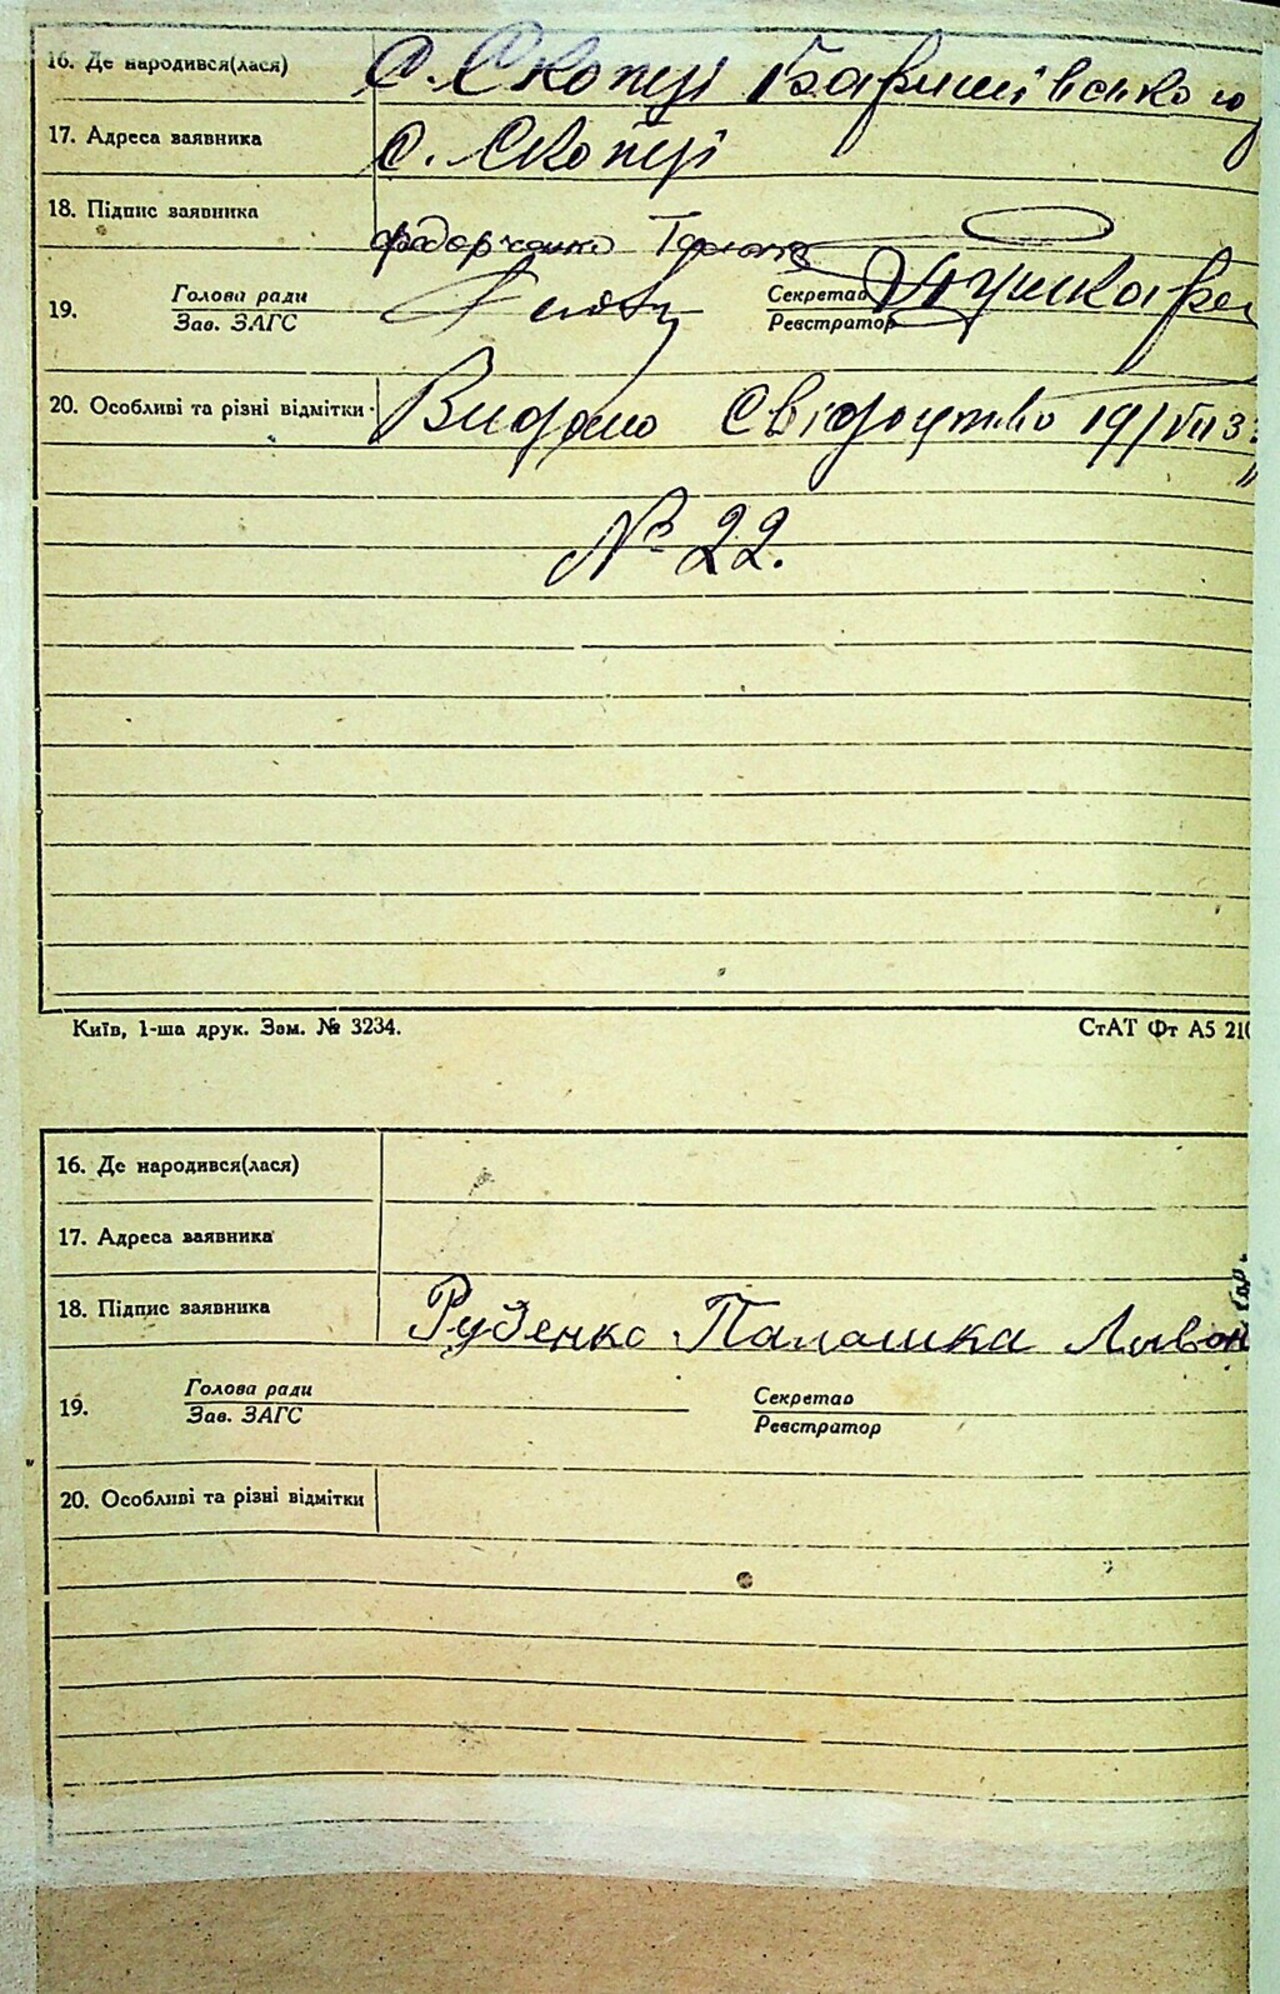 16. Де народився(лася) с. Скопці Баришівського
17. Адреса заявника с. Скопці
18. Підпис заявника Федорченко
19. Голова ради Секретар
Зав. ЗАГС Реєстратор
20. Особливі та різні відмітки Видано Свідоцтво 19/VII 33
№ 22.
Київ, 1-ша друк. Зам. № 3234. СтАТ Фт А5 210
16. Де народився(лася)
17. Адреса заявника
18. Підпис заявника Руденко Палашка
19. Голова ради Секретар
Зав. ЗАГС Реєстратор
20. Особливі та різні відмітки